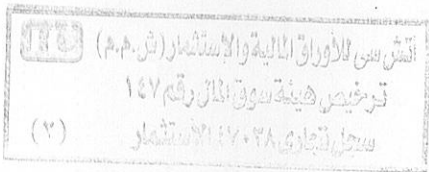 اتش سى للأوراق المالية والإستثمار (ش.م.م)
ترخيص هيئة سوق المال رقم ١٤٧
سجل تجارى ٤٧٠٣٨ الأستثمار
(٢)